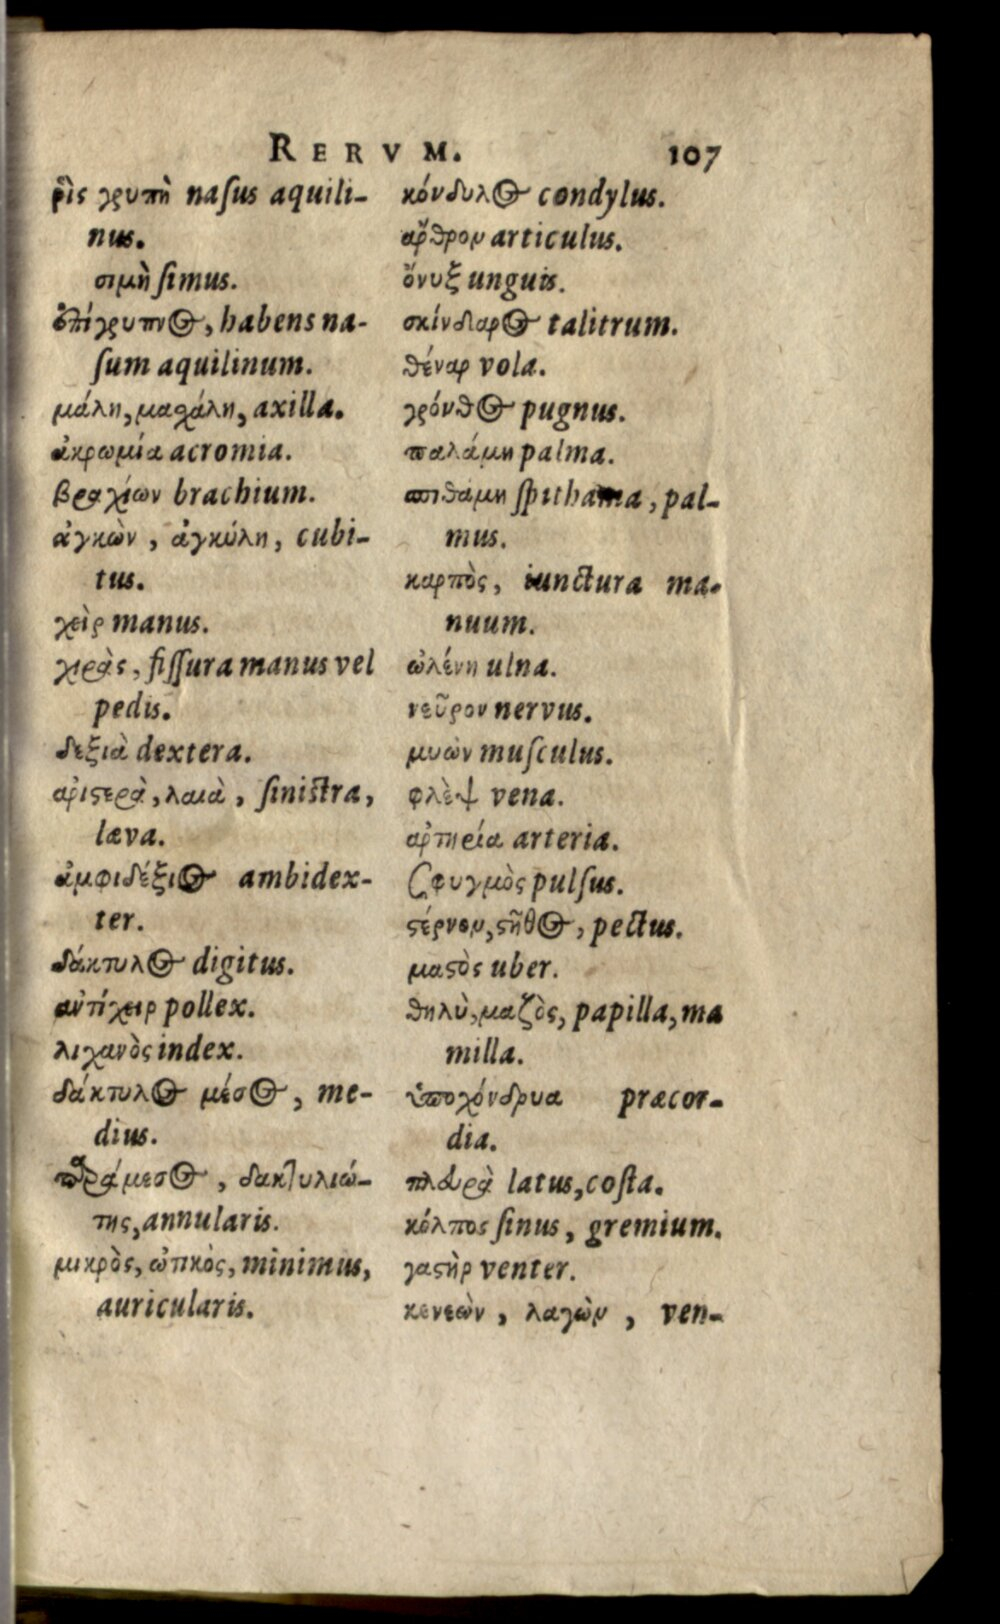 RERVM. 107
ῥὶς γρυπὴ nasus aquili-
nus.
σιμὴ simus.
ἐπίγρυπνος, habens na-
sum aquilinum.
μάλη, μαχάλη, axilla.
ἀκρωμία acromia.
βραχίων brachium.
ἀγκὼν, ἀγκύλη, cubi-
tus.
χεὶρ manus.
χιρὰς, fissura manus vel
pedis.
δεξιὰ dextera.
ἀριστερὰ, λαιὰ, sinistra,
læva.
ἀμφιδέξιος ambidex-
ter.
δάκτυλος digitus.
ἀντίχειρ pollex.
λιχανὸς index.
δάκτυλος μέσος, me-
dius.
παράμεσος, δακτυλιώ-
της, annularis.
μικρὸς, ὠτικὸς, minimus,
auricularis.
κόνδυλος condylus.
ἄρθρον articulus.
ὄνυξ unguis.
σκίνδαρος talitrum.
θέναρ vola.
γρόνθος pugnus.
παλάμη palma.
σπιθαμη spithama, pal-
mus.
καρπὸς, iunctura ma-
nuum.
ὠλένη ulna.
νεῦρον nervus.
μυὼν musculus.
φλὲψ vena.
ἀρτηρία arteria.
σφυγμὸς pulsus.
στέρνον, στῆθος, pectus.
μαστὸς uber.
θηλὺ, μαζὸς, papilla, ma
milla.
ὑποχόνδρυα præcor-
dia.
πλευρὰ latus, costa.
κόλπος sinus, gremium.
γαστὴρ venter.
κενεὼν, λαγὼν, ven-